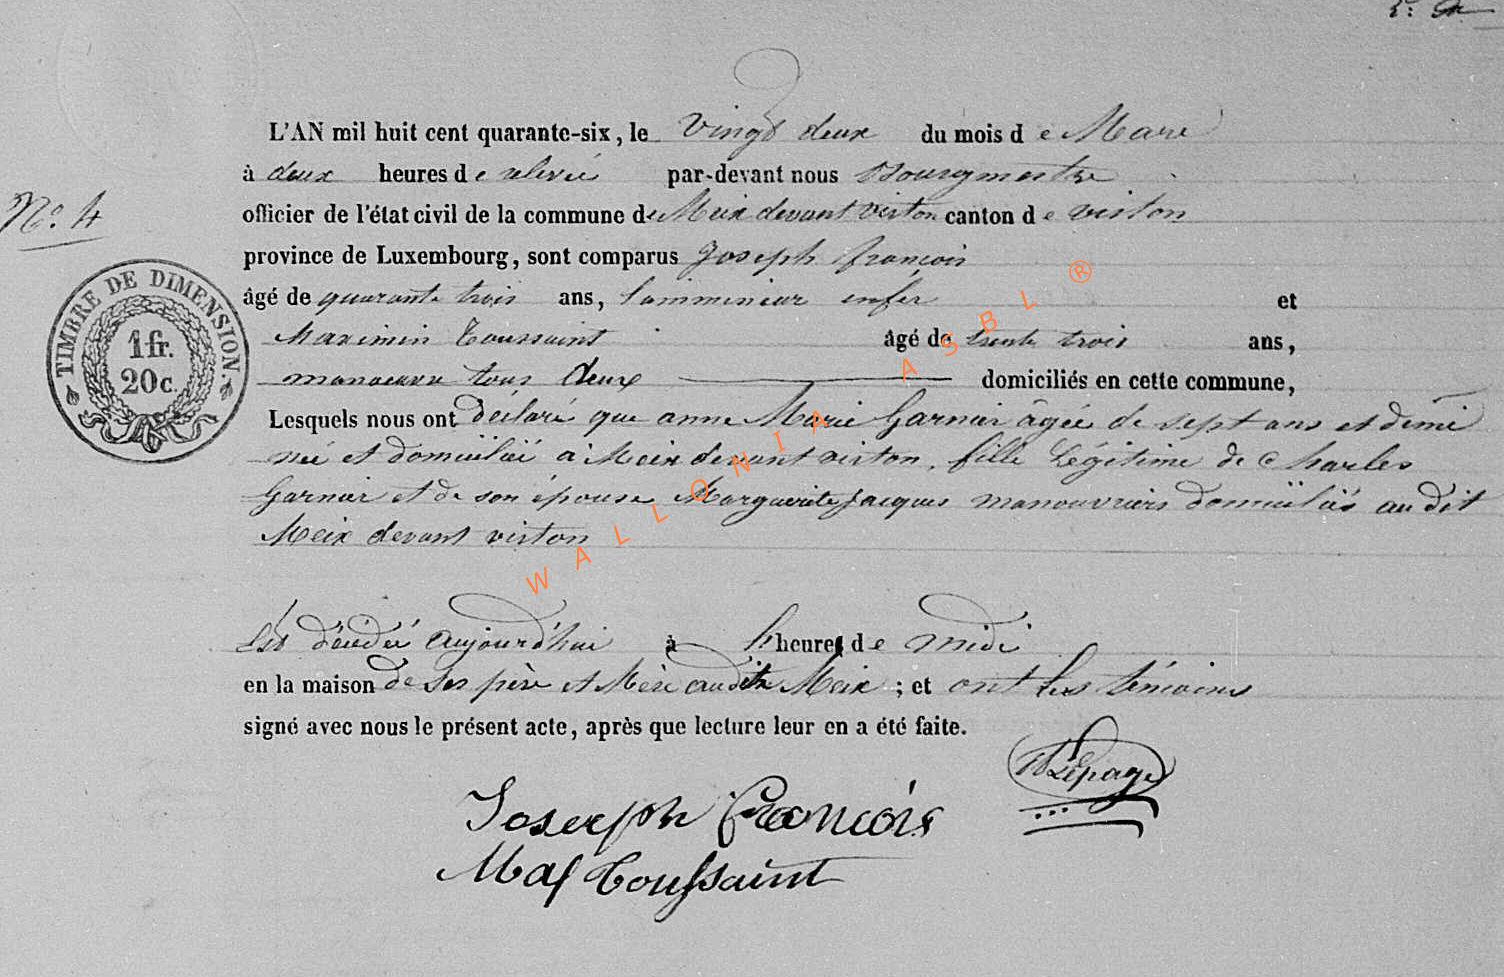 L'AN mil huit cent quarante-six, le vingt deux du mois de Mars
à deux heures de relevée par-devant nous Bourgmestre
N.° 4
officier de l'état civil de la commune de Meix devant virton canton de virton
province de Luxembourg, sont comparus Joseph françois
âgé de quarante trois ans, enfer et
Maximin Toussaint âgé de trente trois ans,
manoeuvre tous deux domiciliés en cette commune,
TIMBRE DE DIMENSION.
1 fr.
20 c.
Lesquels nous ont déclaré que anne Marie Garnier âgée de sept ans et demi
née et domiciliée à Meix devant virton, fille Légitime de Charles
Garnier et de son épouse Marguerite Jacques manouvriers domiciliés au dit
Meix devant virton
Est décédée aujourd'hui à l'heure de midi
en la maison de ses père et Mère audit Meix ; et ont les témoins
signé avec nous le présent acte, après que lecture leur en a été faite.
Lepage
Joserph François
Max Toussaint
WALLONIA ASBL ®